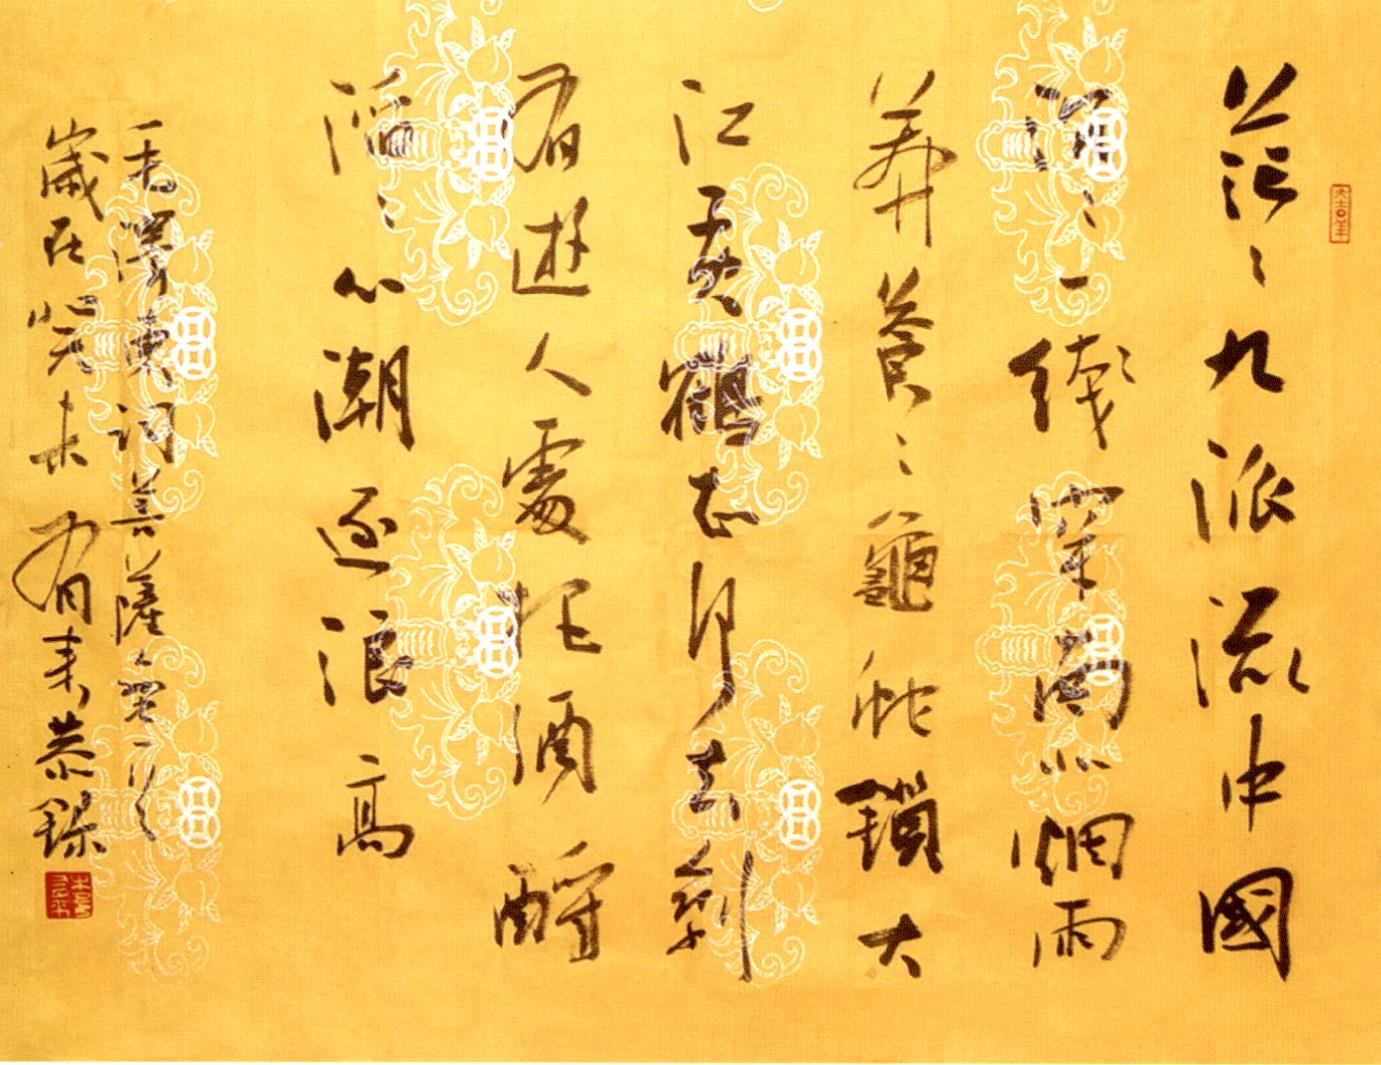 大吉羊
茫〻九派流中國
沉〻一綫穿南北烟雨
莽蒼〻龜蛇鎖大
江黃鶴知何去剩
有遊人處把酒酹
滔〻心潮逐浪高
毛澤東詞菩薩蠻一首
歲在癸未有来恭録